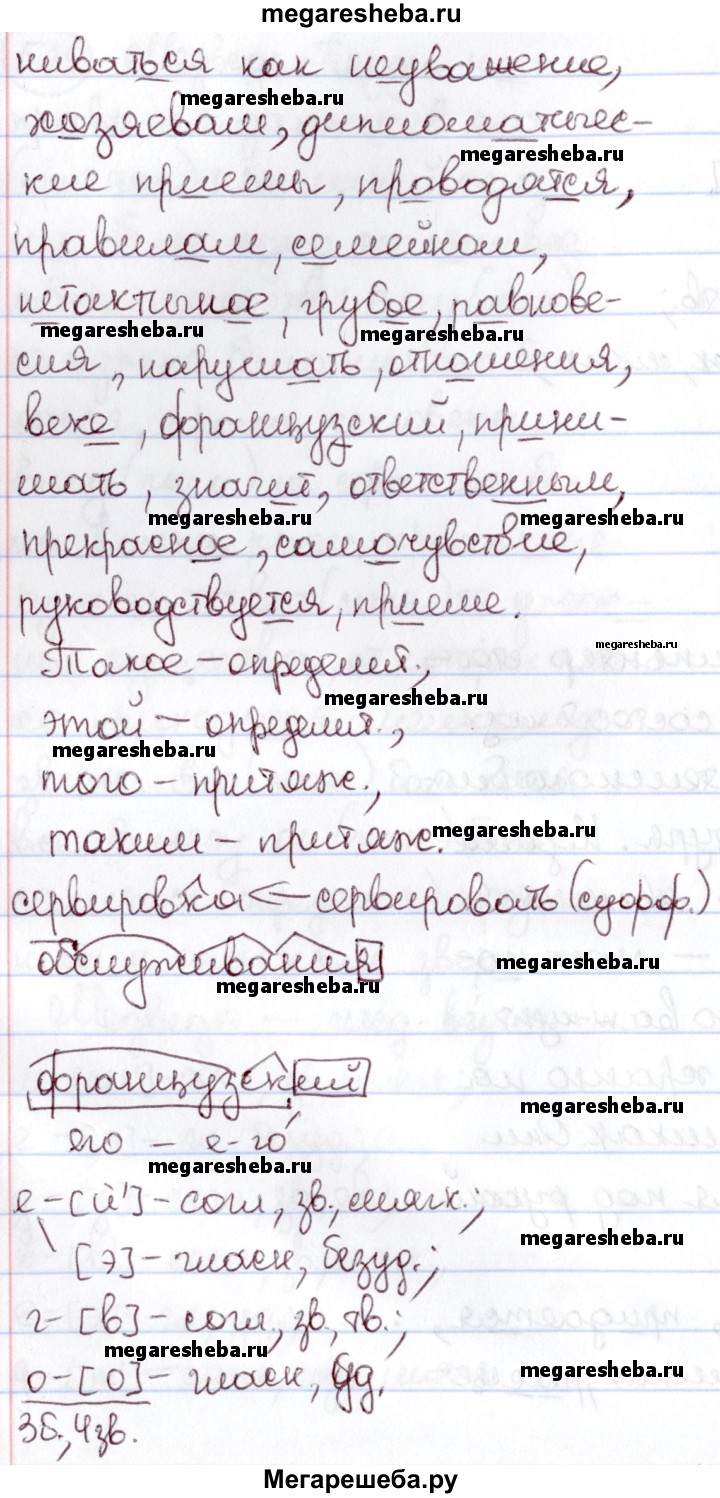 megaresheba.ru
ниваться как неуважение,
megaresheba.ru
хозяевам, дипломатичес-
megaresheba.ru
кие приемы, проводятся,
правилам, семейном,
нетактичное, грубое, равнове-
megaresheba.ru
megaresheba.ru
сия, нарушать, отношения,
веке, французский, прини-
мать, значит, ответственным,
megaresheba.ru
megaresheba.ru
прекрасное, самочувствие,
руководствуется, приеме.
megaresheba.ru
Такое – определит.,
megaresheba.ru
этой – определит.,
megaresheba.ru
того – притяж.,
таким – притяж.
megaresheba.ru
сервировка <– сервировать (суфф.)
обслуживания
megaresheba.ru
megaresheba.ru
французский
megaresheba.ru
его – е-го́
megaresheba.ru
е – [й'] – согл, зв., мягк.;
\ [э] – гласн, безуд.;
megaresheba.ru
г – [в] – согл, зв., тв.;
megaresheba.ru
о – [о] – гласн, уд.
megaresheba.ru
3б., 4зв.
Мегарешеба.ру